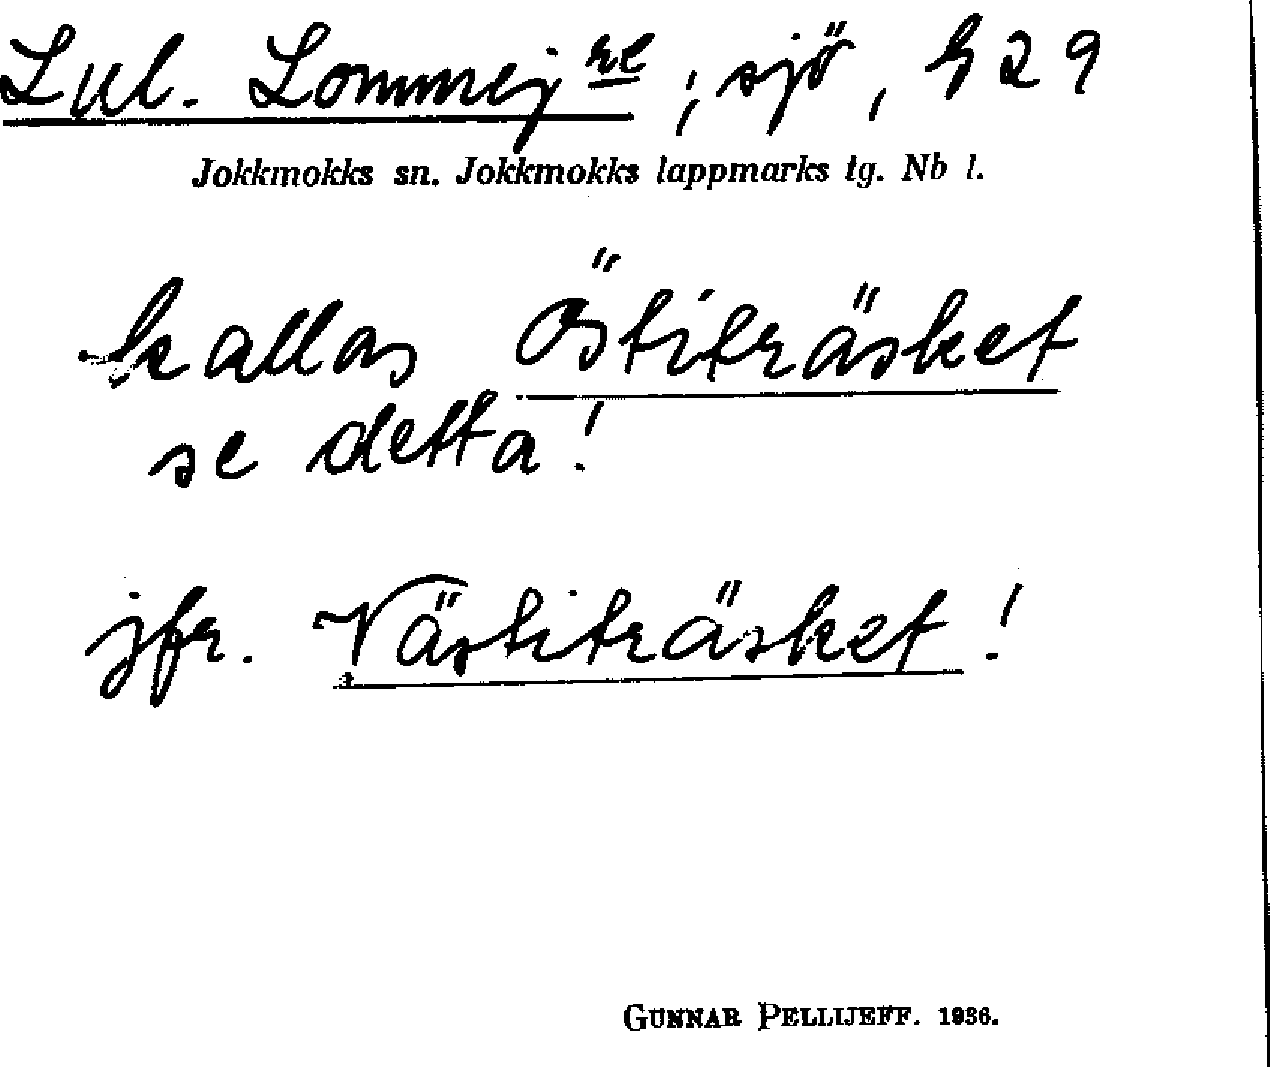 Lul. Lommejre; sjö, h 29
Jokkmokks sn. Jokkmokks lappmarks tg. Nb l.
kallas Östiträsket
se detta!
jfr. Västiträsket!
GUNNAR PELLIJEFF. 1936.